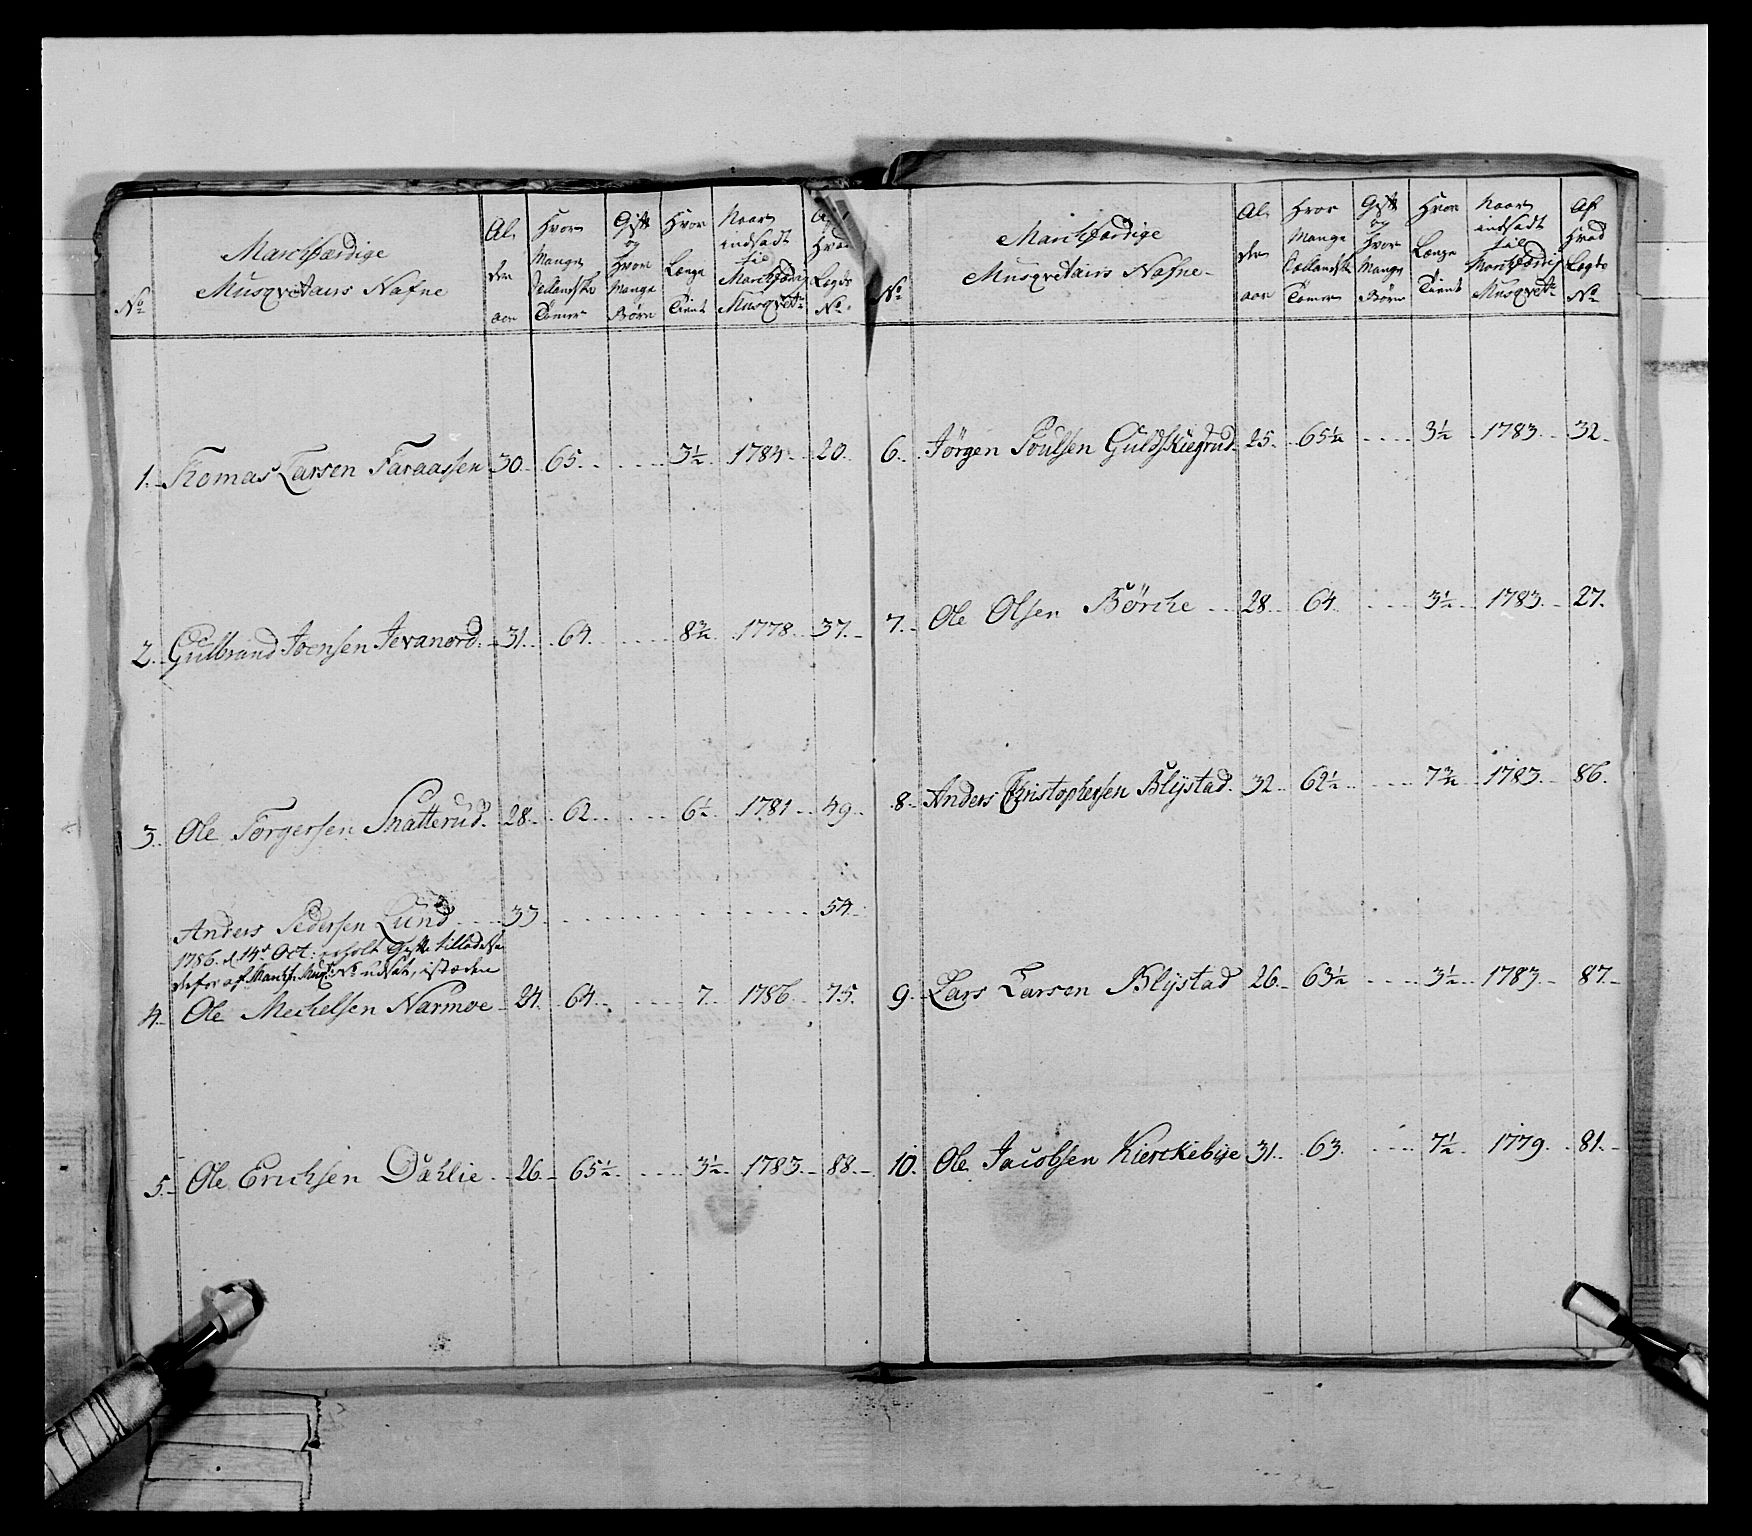 No
Marchfærdige
Musqvetairs Nafne
Al-
der
aar
Hvor
Mange
Sællandske
Tomer
Gift
og
Hvor
Mange
Børn
Hvor
Længe
Tient
Naar
indsadt
til
Marchfærdig
Musqvetr
Hvad
Legds
No
1. Thomas Larsen Faraassen 30. 65. 3½ 1784 20.
2. Gulbrand Joensen Jevanord. 31. 64. 8¾ 1778 37.
3. Ole Torgersen Snatterud. 28. 62. 6½ 1781 49
Anders Pedersen Lund 33 54.
1786 d. 14d Oct: erholt Gifte tilladelse
derfor af March: Musq: No udsat, istæden
4. Ole Mechelsen Narmoe 24. 64. 7. 1786. 75.
5. Ole Erichsen Dahlie 26. 65½ 3½ 1783. 88.
No
Marchfærdige
Musqvetairs Nafne
Al-
der
aar
Hvor
Mange
Sællandsk
Tomer
Gift
og
Hvor
Mange
Børn
Hvor
Længe
Tient
Naar
indsadt
til
Marchfærdig
Musqvetr
Af
Hvad
Legds
No
6. Jørgen Poulsen Guldskiegrud. 25. 65½ 3½ 1783. 32.
7. Ole Olsen Børche 28. 64. 3½ 1783. 27.
8. Anders Christophersen Blystad. 32. 62½ 7¾ 1783. 86.
9. Lars Larsen Blystad 26. 63½ 3½ 1783. 87.
10. Ole Jacobsen Kierckebye 31. 63. 7½ 1779. 81.